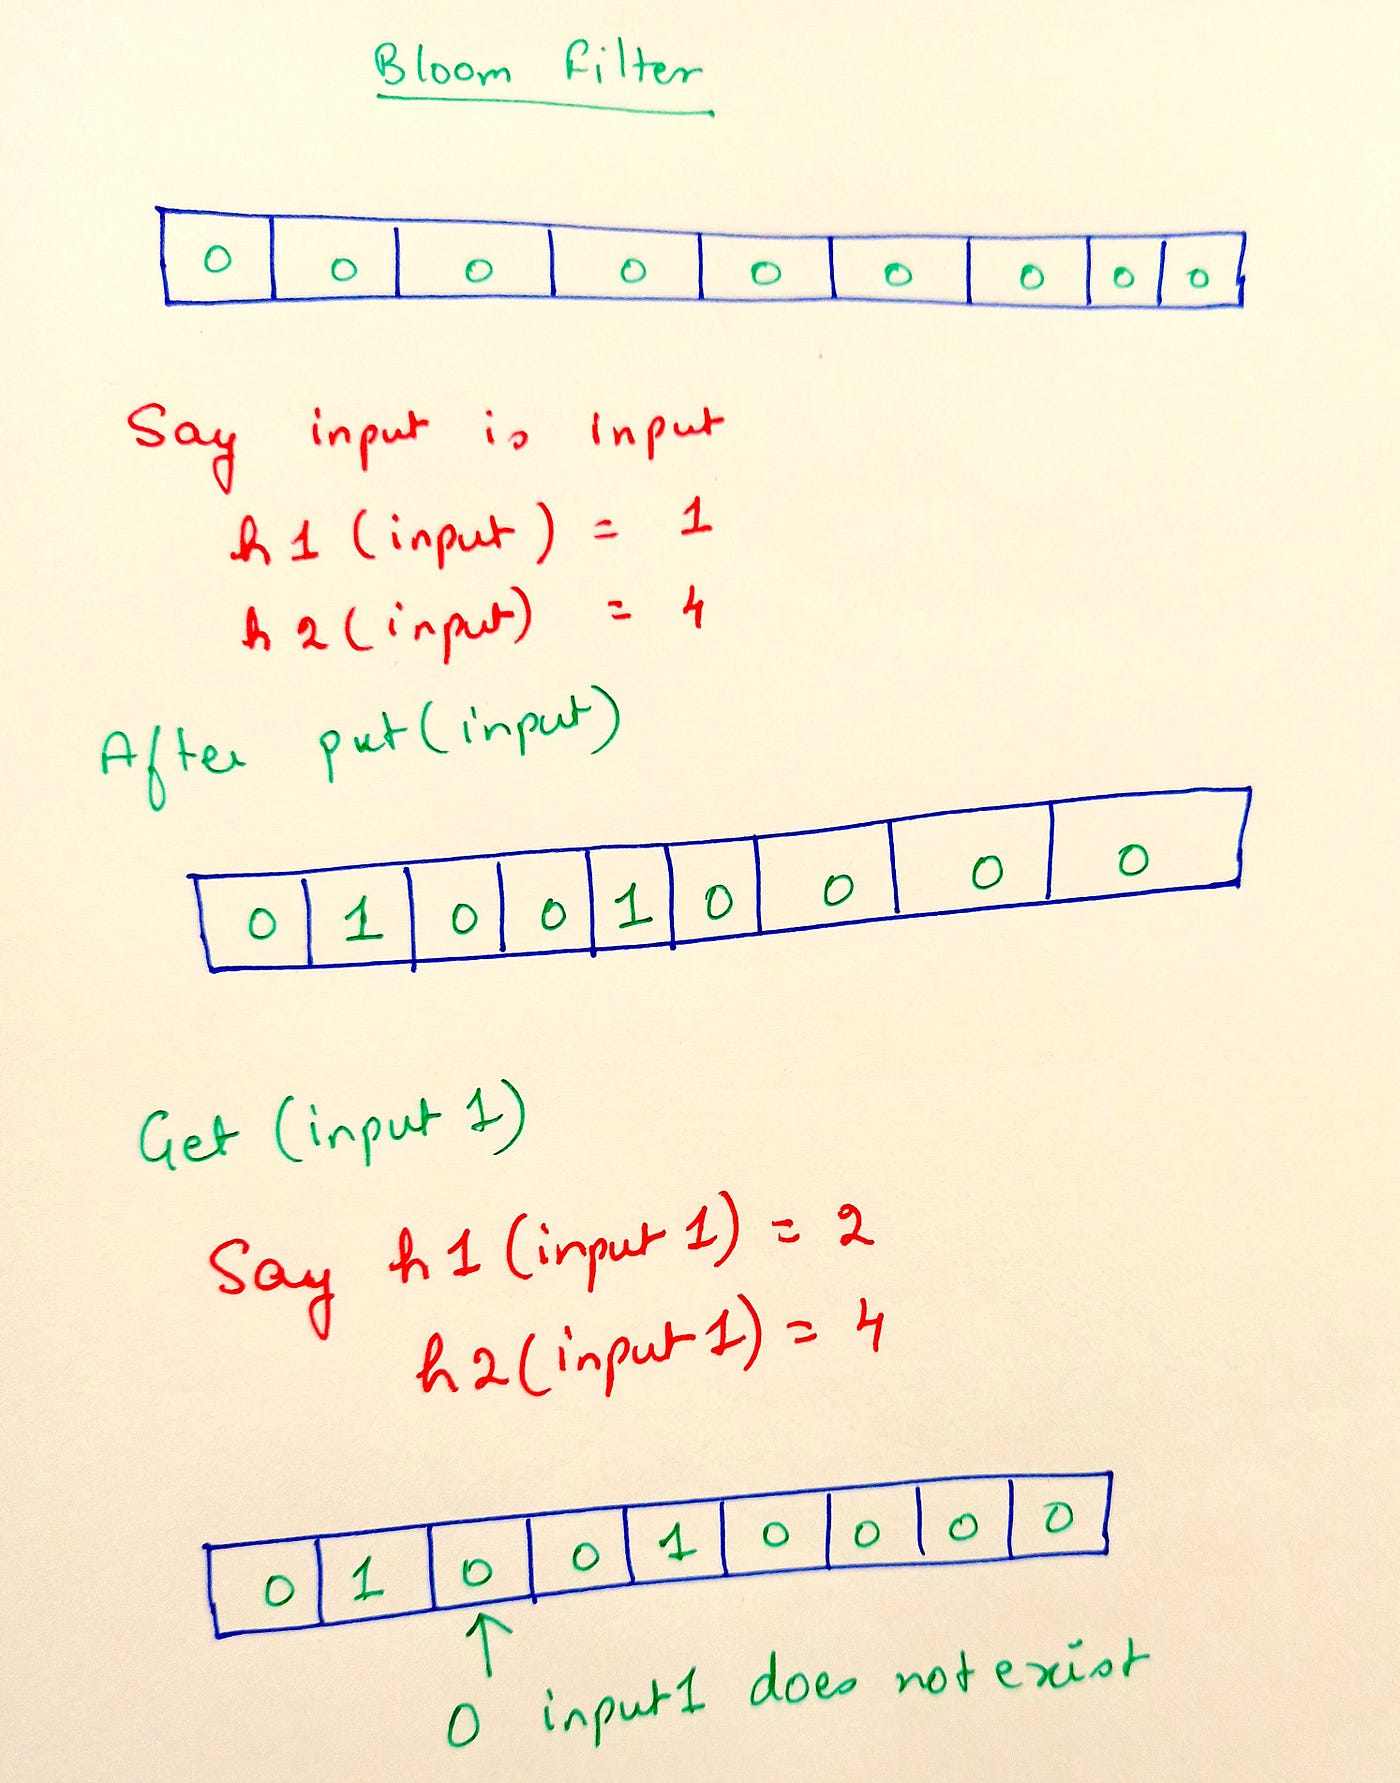 Bloom Filter
0 0 0 0 0 0 0 0 0
Say input is input
h1 (input) = 1
h2 (input) = 4
After put (input)
0 1 0 0 1 0 0 0 0
Get (input 1)
Say h1 (input 1) = 2
h2 (input 1) = 4
0 1 0 0 1 0 0 0 0
↑
0 input1 does not exist